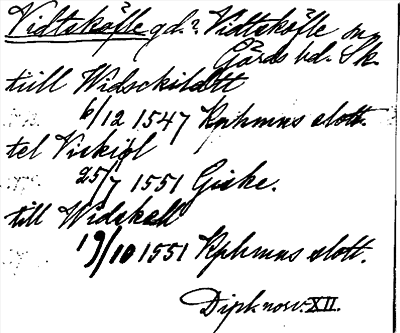 Vidtsköfle gd. Vidtsköfle sn
Gärds hd. Sk.
till Widsckildtt
6/12 1547 Kphmns slott.
tel Viskiøl
25/7 1551 Giske.
till Widskell
19/10 1551 Kphmns slott.
Dipl. norv. XII.